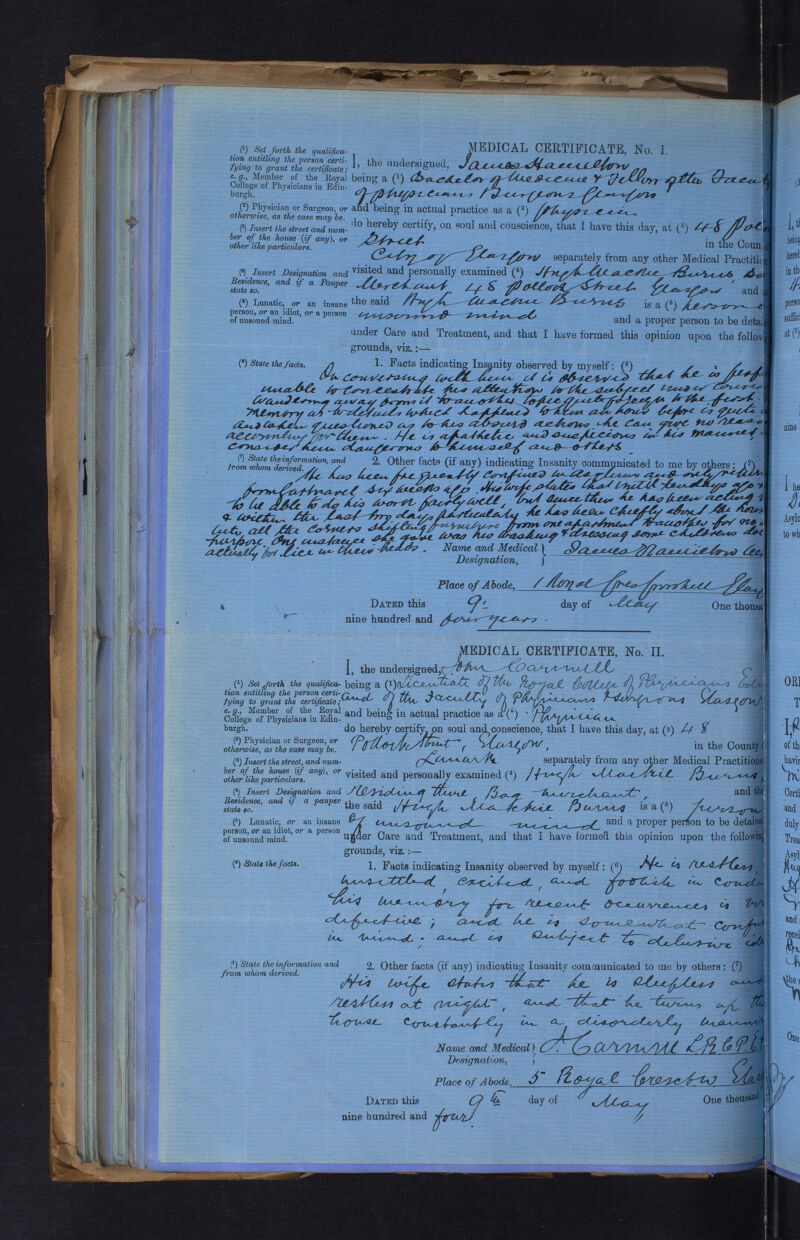 MEDICAL CERTIFICATE, No. I.
(1) Set forth the qualifica-
tion entitling the person certi-
fying to grant the certificate;
e.g., Member of the Royal
College of Physicians in Edin-
burgh.
(2) Physician or Surgeon, or
otherwise, as the case may be.
(3) Insert the street and num-
ber of the house (if any), or
other like particulars.
(4) Insert Designation and
Residence, and if a Pauper
state so.
(5) Lunatic, or an insane
person, or an idiot, or a person
of unsound mind.
I, the undersigned, James Hamilton
being a (1) Bachelor of Medicine & Fellow of the
of Physicians & Surgeons Glasgow
and being in actual practice as a (2) Physician
do hereby certify, on soul and conscience, that I have this day, at (3) 48
Street in the
City of Glasgow separately from any other Medical
visited and personally examined (4) Hugh Mackie Burns
Merchant 48 Pollock Street Glasgow and
the said Hugh Mackie Burns is a (5) person
unsound mind and a proper person to be
under Care and Treatment, and that I have formed this opinion upon the
grounds, viz.:—
(6) State the facts.
1. Facts indicating Insanity observed by myself: (6)
On conversing with him it is observed that he is
unable to concentrate his attention to the subject under
wandering away from it to another topic quite foreign to the first.
memory as to details which happened to him an hour before is quite
and when questioned as to his absurd actions he can give no
accounting for them. He is apathetic and suspicious in his manner
consider him dangerous to himself and others
(7) State the information, and
from whom derived.
2. Other facts (if any) indicating Insanity communicated to me by others: (7)
He has been frequently confined in asylums and only
from Gartnavel six weeks ago. His wife states that until ten days ago
to be able to do his work fairly well, but since then he has been acting
& within the last two days particularly he has been chiefly about the
all the corners shifting furniture from one apartment to another for no
purpose. One instance she gave was his washing & dressing some childrens
actually for lice in their heads.
Name and Medical
Designation,
James Hamilton
Place of Abode, 1 Royal Cres Crosshill
DATED this 9th day of May One
nine hundred and four years.
MEDICAL CERTIFICATE, No. II.
(1) Set forth the qualifica-
tion entitling the person certi-
fying to grant the certificate;
e.g., Member of the Royal
College of Physicians in Edin-
burgh.
(2) Physician or Surgeon, or
otherwise, as the case may be.
(3) Insert the street, and num-
ber of the house (if any), or
other like particulars.
(4) Insert Designation and
Residence, and if a pauper
state so.
(5) Lunatic, or an insane
person, or an idiot, or a person
of unsound mind.
I, the undersigned, John Carswell
being a (1) Licentiate of the Royal College of Physicians
and of the Faculty of Physicians & Surgeons Glasgow
and being in actual practice as a (2) Physician
do hereby certify, on soul and conscience, that I have this day, at (3) 48
Pollock Street, Glasgow, in the County
Lanark separately from any other Medical
visited and personally examined (4) Hugh Mackie Burns,
residing there, Bag merchant, and
the said Hugh Mackie Burns is a (5) person
of unsound mind and a proper person to be
under Care and Treatment, and that I have formed this opinion upon the
grounds, viz.:—
(6) State the facts.
1. Facts indicating Insanity observed by myself: (6) He is restless,
unsettled, excited, and foolish in
his memory for recent occurrences is
defective; and he is somewhat
in mind. and is subject to delusive
(7) State the information and
from whom derived.
2. Other facts (if any) indicating Insanity communicated to me by others: (7)
His wife states that he is sleepless and
restless at night, and that he turns up the
house constantly in a disorderly
Name and Medical
Designation,
J. Carswell L.R.C.P.
Place of Abode, 5 Royal Crescent W
DATED this 9th day of May One thousand
nine hundred and four